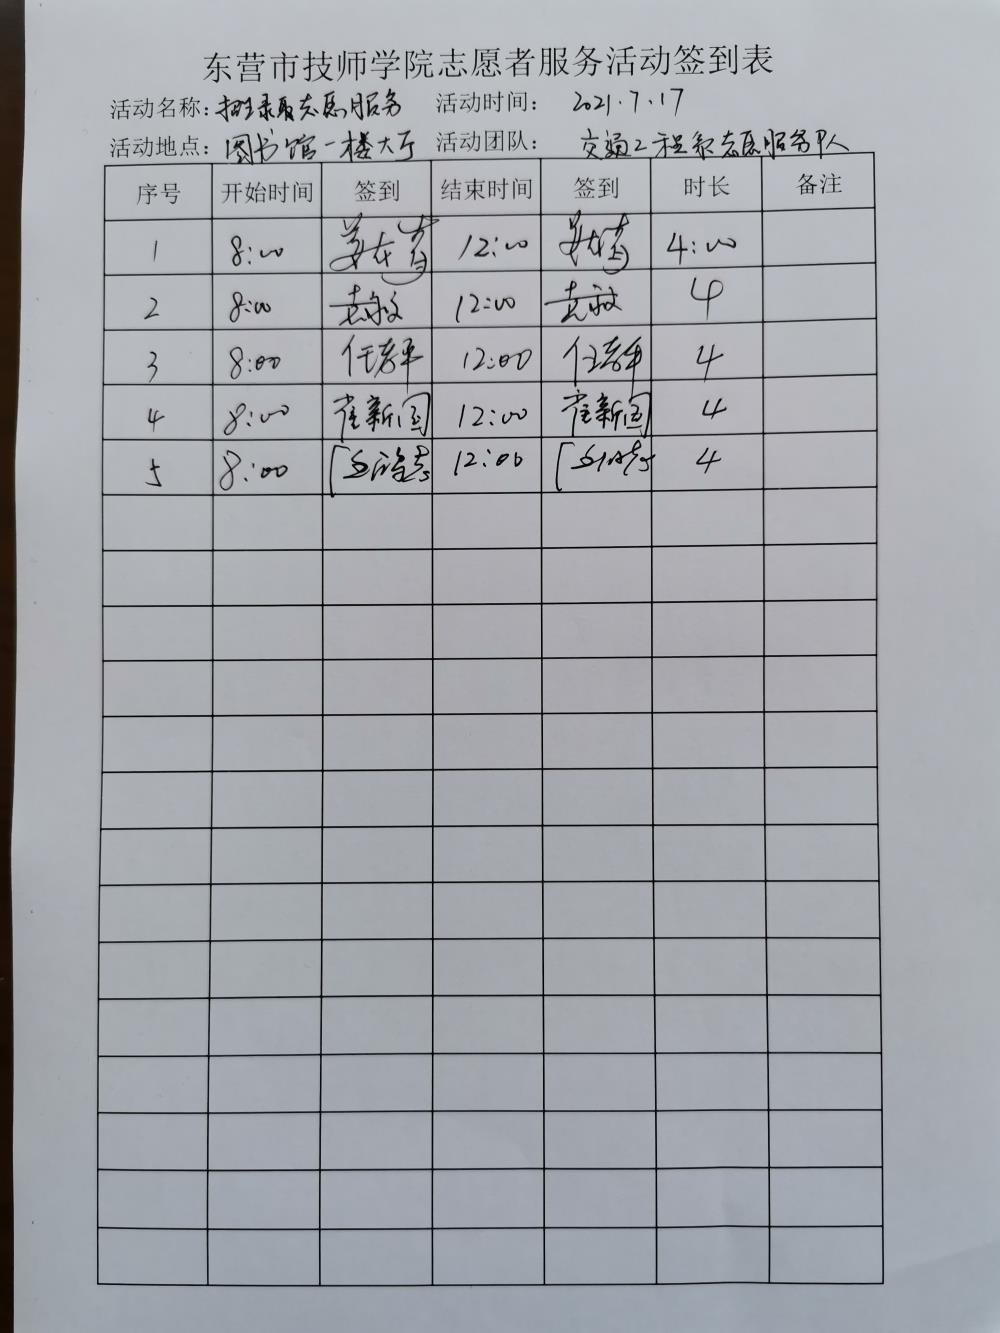 东营市技师学院志愿者服务活动签到表
活动名称: 招生录取志愿服务 活动时间: 2021.7.17
活动地点: 图书馆一楼大厅 活动团队: 交通工程系志愿服务队
序号 开始时间 签到 结束时间 签到 时长 备注
1 8:00 12:00 4:00
2 8:00 12:00 4
3 8:00 12:00 4
4 8:00 崔新国 12:00 崔新国 4
5 8:00 12:00 4